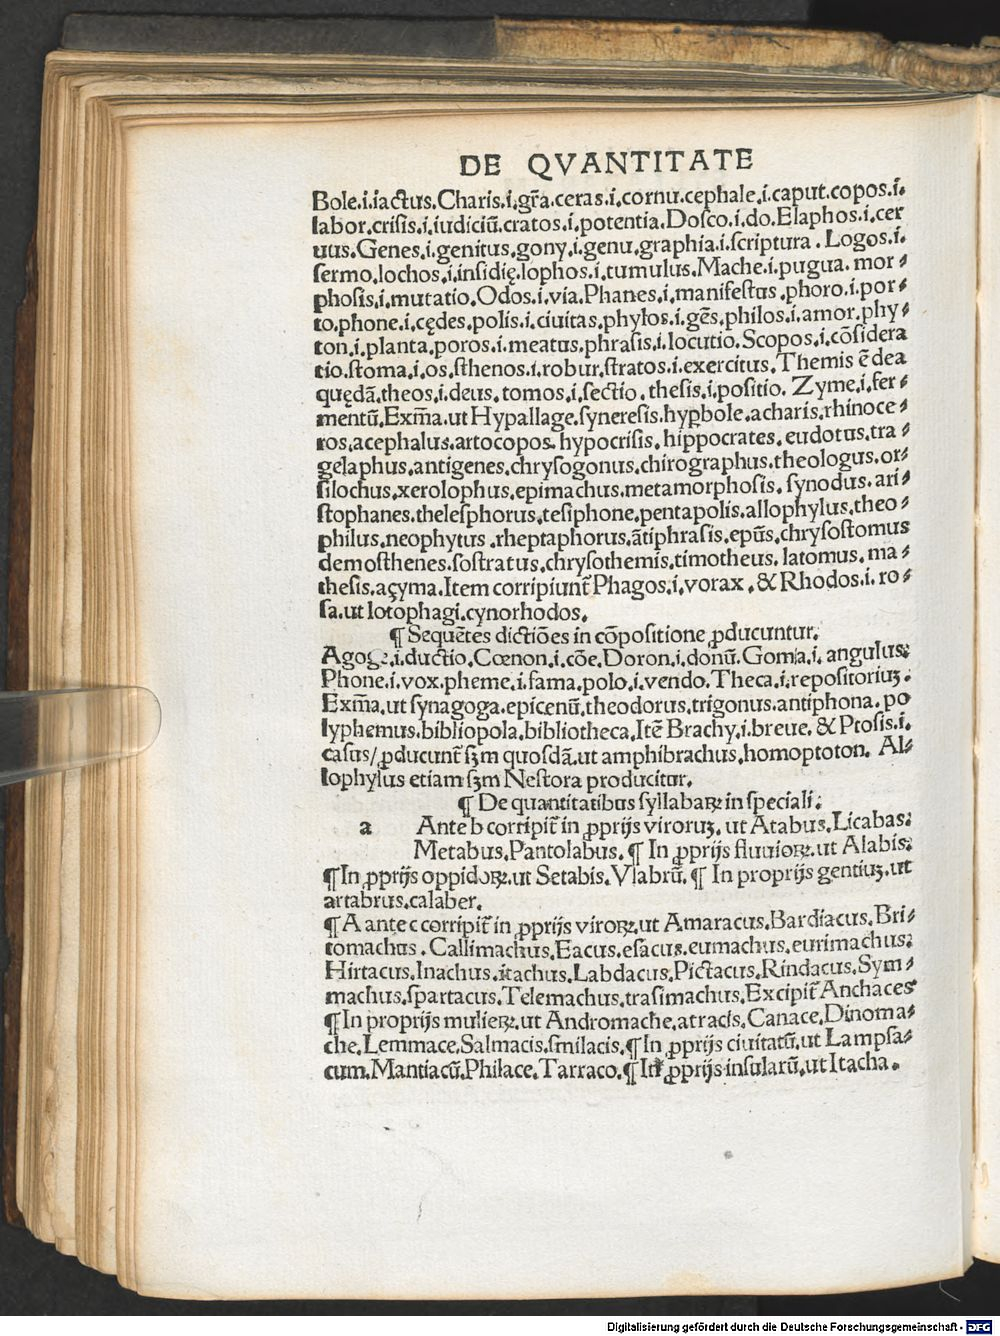 DE QVANTITATE
Bole.i.iactus.Charis.i.gr̃a.ceras.i.cornu.cephale.i.caput.copos.i.
labor.crisis.i.iudiciũ.cratos.i.potentia.Dosco.i.do.Elaphos.i.cer
uus.Genes.i.genitus.gony.i.genu.graphia.i.scriptura.Logos.i.
sermo.lochos.i.insidię.lophos.i.tumulus.Mache.i.pugua. mor⸗
phosis.i.mutatio.Odos.i.via.Phanes.i.manifestus.phoro.i.por⸗
to.phone.i.cędes.polis.i.ciuitas.phylos.i.gẽs.philos.i.amor.phy⸗
ton.i.planta.poros.i.meatus.phrasis.i.locutio.Scopos.i.cõsidera
tio.stoma.i.os.sthenos.i.robur.stratos.i.exercitus.Themis ẽ dea
quędã.theos.i.deus.tomos.i.sectio.thesis.i.positio.Zyme.i.fer⸗
mentũ.Exm̃a.ut Hypallage.syneresis.hyꝑbole.acharis.rhinoce⸗
ros.acephalus.artocopos.hypocrisis.hippocrates.eudotus.tra⸗
gelaphus.antigenes.chrysogonus.chirographus.theologus.or⸗
silochus.xerolophus.epimachus.metamorphosis.synodus.ari⸗
stophanes.thelesphorus.tesiphone.pentapolis.allophylus.theo⸗
philus.neophytus.rheptaphorus.ãtiphrasis.epũs.chrysostomus
demosthenes.sostratus.chrysothemis.timotheus.latomus.ma⸗
thesis.açyma.Item corripiunt̃ Phagos.i.vorax.& Rhodos.i.ro⸗
sa.ut lotophagi.cynorhodos.
¶ Sequẽtes dictiões in cõpositione ꝓducuntur.
Agoge.i.ductio.Cœnon.i.cõe.Doron.i.donũ.Gonia.i.angulus.
Phone.i.vox.pheme.i.fama.polo.i.vendo.Theca.i.repositoriuꝫ.
Exm̃a.ut synagoga.epicenũ.theodorus.trigonus.antiphona.po
lyphemus.bibliopola.bibliotheca.Itẽ Brachy.i.breue.& Ptosis.i.
casus/ꝓducunt̃ sꝫm quosdã.ut amphibrachus.homoptoton. Al⸗
lophylus etiam sꝫm Nestora producitur.
¶ De quantitatibus syllabaꝝ in speciali.
a Ante b corripit̃ in ꝓprijs viroruꝫ.ut Atabus.Licabas.
Metabus.Pantolabus.¶ In ꝓprijs fluuioꝝ.ut Alabis.
¶In ꝓprijs oppidoꝝ.ut Setabis.Vlabrũ.¶ In proprijs gentiuꝫ.ut
artabrus.calaber.
¶ A ante c corripit̃ in ꝓprijs viroꝝ.ut Amaracus.Bardiacus.Bri⸗
tomachus.Callimachus.Eacus.esacus.eumachus.eurimachus.
Hirtacus.Inachus.itachus.Labdacus.Pictacus.Rindacus.Sym⸗
machus.spartacus.Telemachus.trasimachus.Excipit̃ Anchaces
¶In proprijs mulieꝝ.ut Andromache.atracis.Canace.Dinoma⸗
che.Lemmace.Salmacis.smilacis.¶In ꝓprijs ciuitatũ.ut Lampsa⸗
cum.Mantiacũ.Philace.Tarraco.¶ ꝓprijs insularũ.ut Itacha.
Digitalisierung gefördert durch die Deutsche Forschungsgemeinschaft - DFG